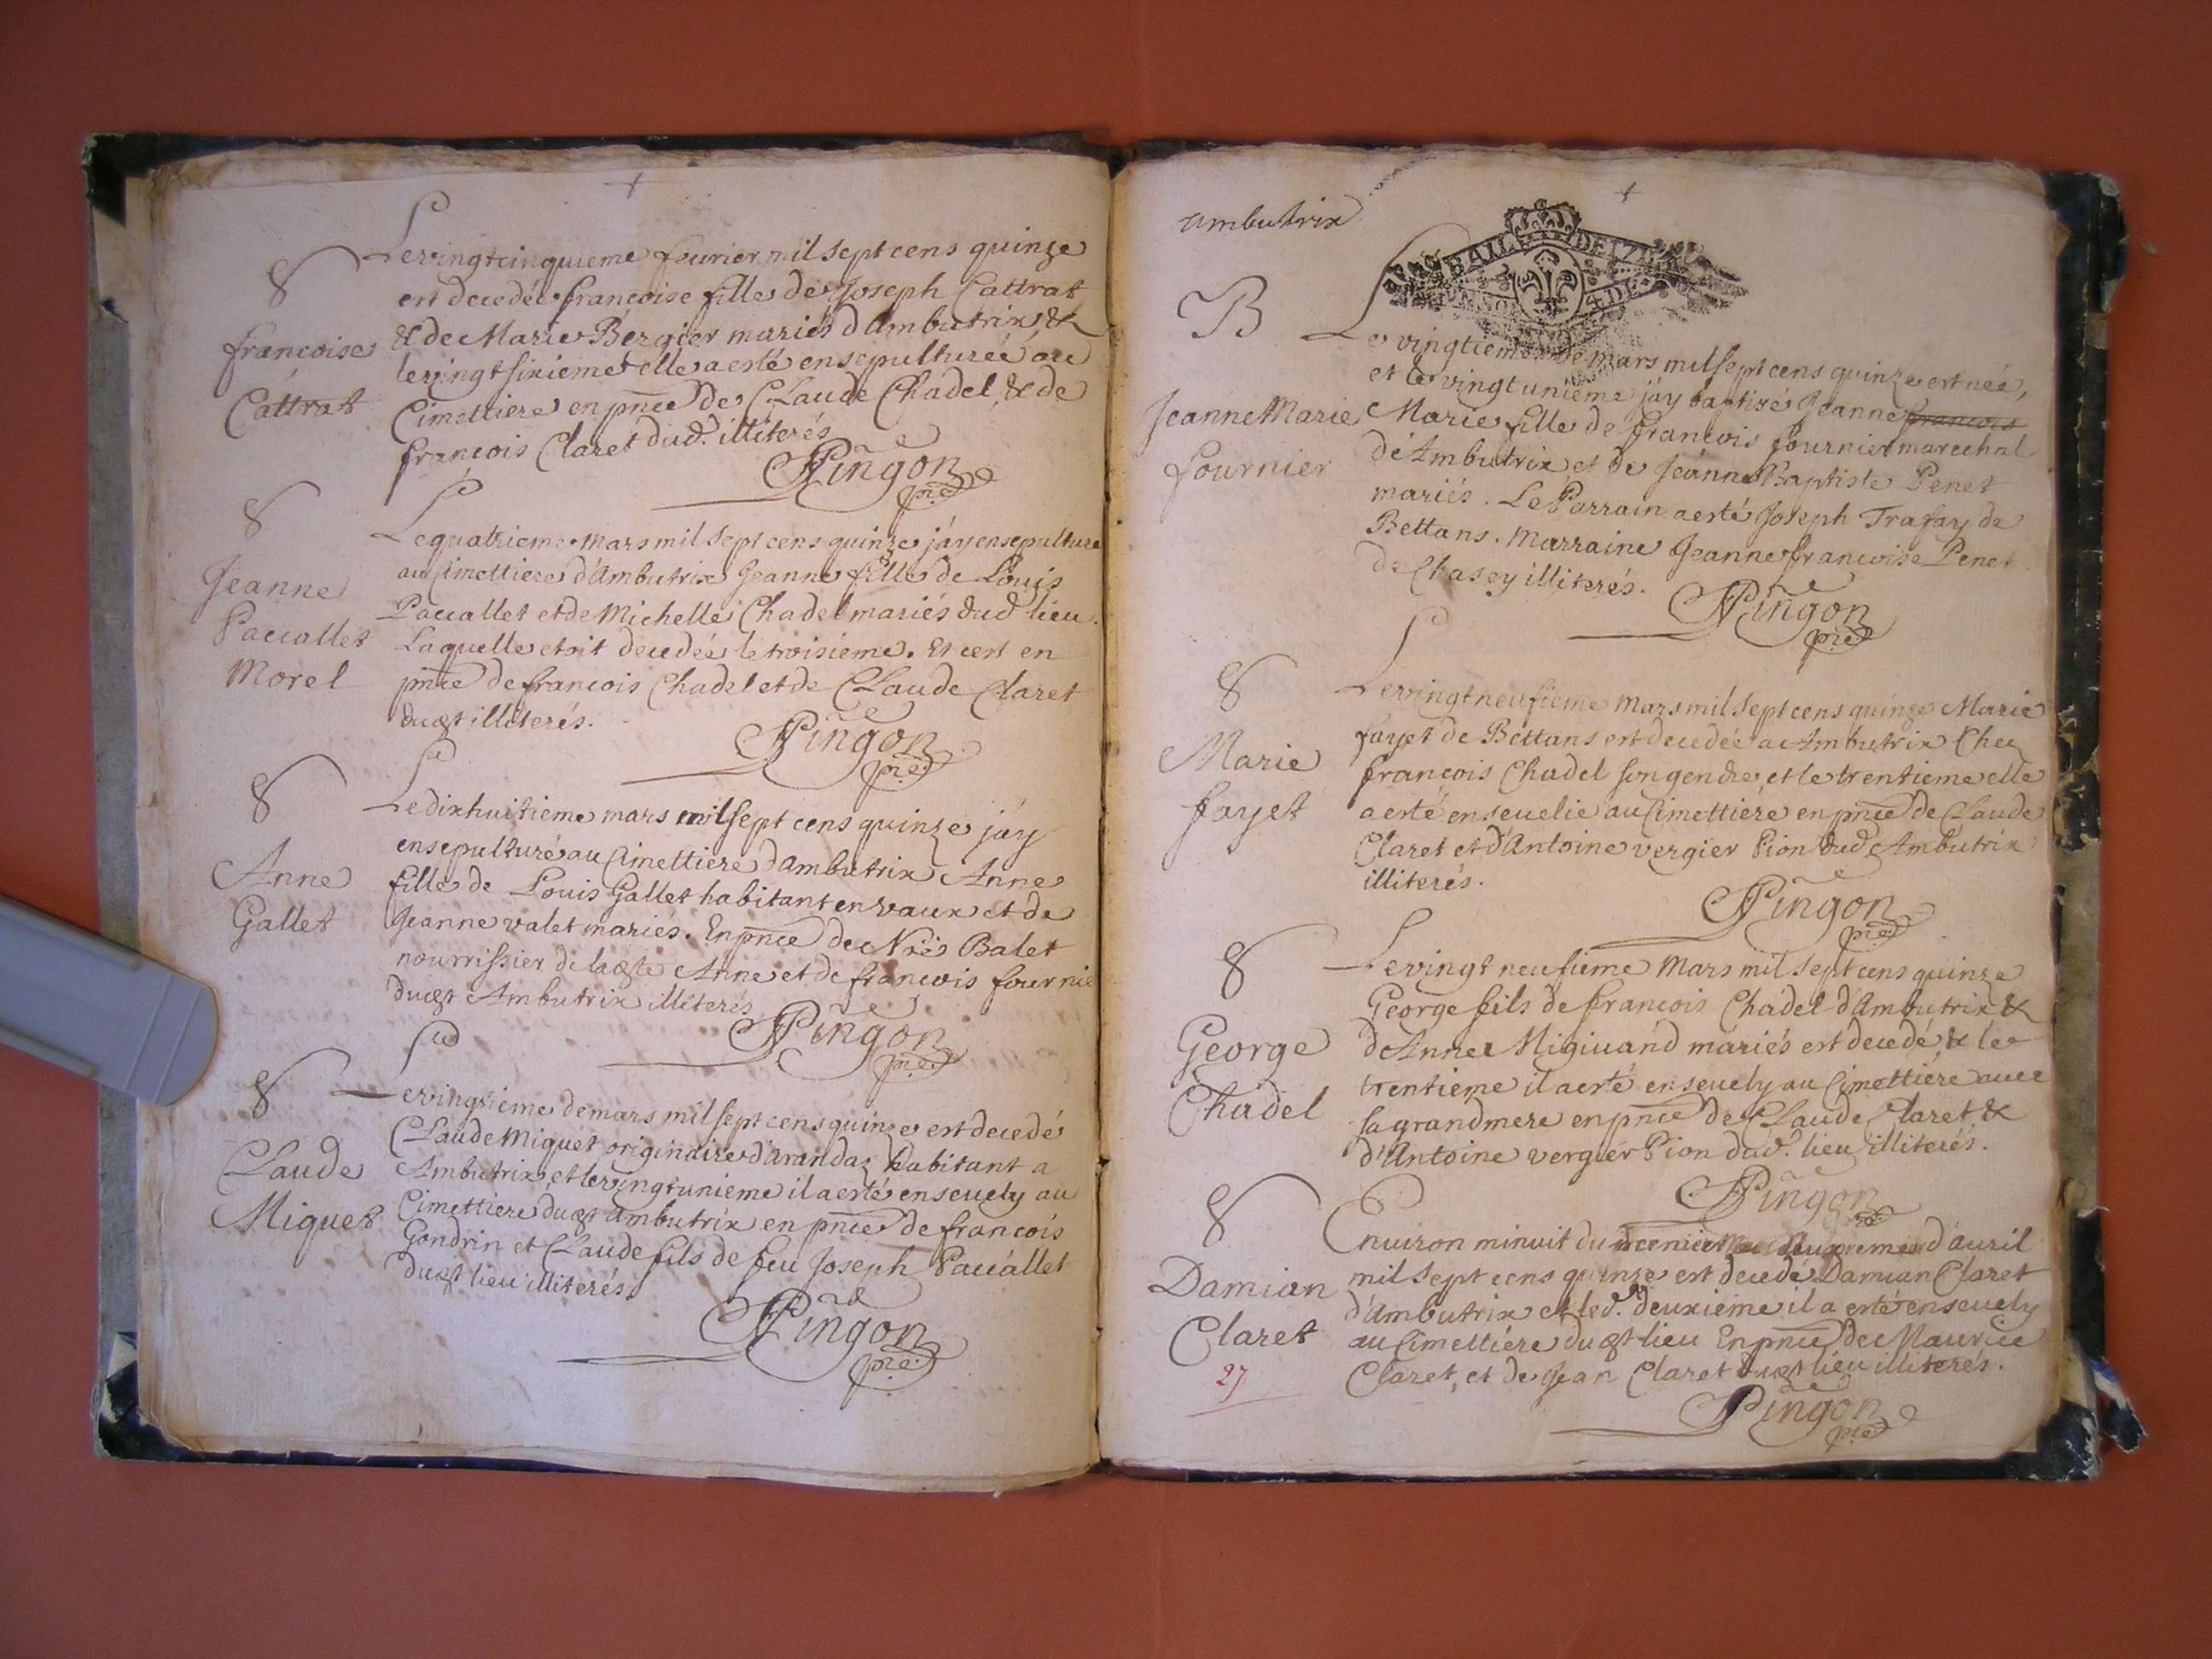 Le vingtcinquieme feurier mil sept cens quinze
8
est decedée françoise fille de Joseph Cattrat
françoise
Cattrat
& de Marie Bergier mariés d'Ambutrix, &
le vingt sixieme elle a esté ensepulturéé au
Cimettiere en pnce de Claude Chadel, & de
françois Claret dud. illiterés
Pingon
pre
8
Jeanne
Paccallet
Morel
Le quatrieme mars mil sept cens quinze j'ay ensepulturé
au Cimettiere d'Ambutrix Jeanne fille de Louis
Paccallet et de Michelle Chadel mariés dud lieu.
Laquelle etoit decedée le troisieme. Et cest en
pnce de francois Chadel et de Claude Claret
dudt illiterés.
Pingon
pre
8
Anne
Gallet
Le dixhuitieme mars mil sept cens quinze j'ay
ensepulturé au Cimettiere d'Ambutrix Anne
fille de Louis Gallet habitant en vaux et de
Jeanne valet mariés. En pnce de Balet
nourrissier de lad Anne et de francois fournie
dudt Ambutrix illiterés
Pingon
pre
8
Claude
Miquet
Le vingtieme de mars mil sept cens quinze est decedé
Claude Miquet originaire d'arandaz habitant a
Ambutrix, et le vingtunieme il a esté enseuely au
Cimettiere dudt ambutrix en pnce de francois
Gondrin et Claude fils de feu Joseph Paccallet
dudt lieu illiterés.
Pingon
pre
ambutrix
BAIL
DE
4 DE
B
Jeanne Marie
fournier
Le vingtieme de mars mil sept cens quinze est néé,
et le vingtunieme j'ay baptisé Jeanne francois
Marie fille de francois fournier marechal
d'Ambutrix et de Jeanne Baptiste Penet
mariés. Le Parrain a esté Joseph Trafay de
Bettans. Marraine Jeanne francoise Penet
de Chasey illiterés.
Pingon
pre
8
Marie
fayet
Le vingtneufieme mars mil sept cens quinze Marie
fayet de Bettans est decedée a Ambutrix Chez
françois Chadel son gendre, et le trentieme elle
a esté enseuelie au Cimettiere en pnce de Claude
Claret et d'Antoine vergier Pion dud Ambutrix
illiterés.
Pingon
pre
8
George
Chadel
Le vingt neufieme Mars mil sept cens quinze
George fils de francois Chadel d'Ambutrix &
d'Anne Miguand mariés est decedé, & le
trentieme il a esté enseuely au Cimettiere auec
sa grandmere en pnce de Claude Claret &
d'Antoine vergier Pion dud. lieu illiterés.
Pingon
pre
8
Damian
Claret
27
Enuiron minuit du d'auril
mil sept cens quinze est decedé Damian Claret
d'Ambutrix et led. deuxieme il a esté enseuely
au Cimettiere dudt lieu En pnce de Maurice
Claret, et de Jean Claret dudt lieu illiterés.
Pingon
pre